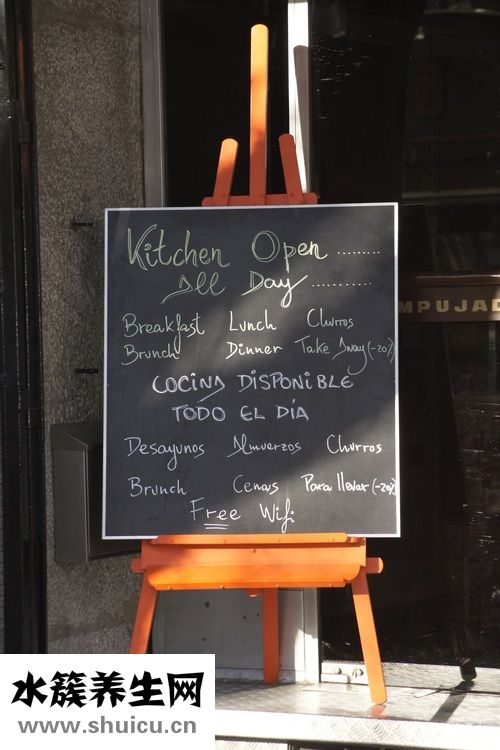 Kitchen Open ......
All Day ...........
Breakfast Lunch Churros
Brunch Dinner Take Away (-20%)
COCINA DISPONIBLE
TODO EL DÍA
Desayunos Almuerzos Churros
Brunch Cenas Para llevar (-20%)
Free Wifi
MPUJAD
水簇养生网
www.shuicu.cn